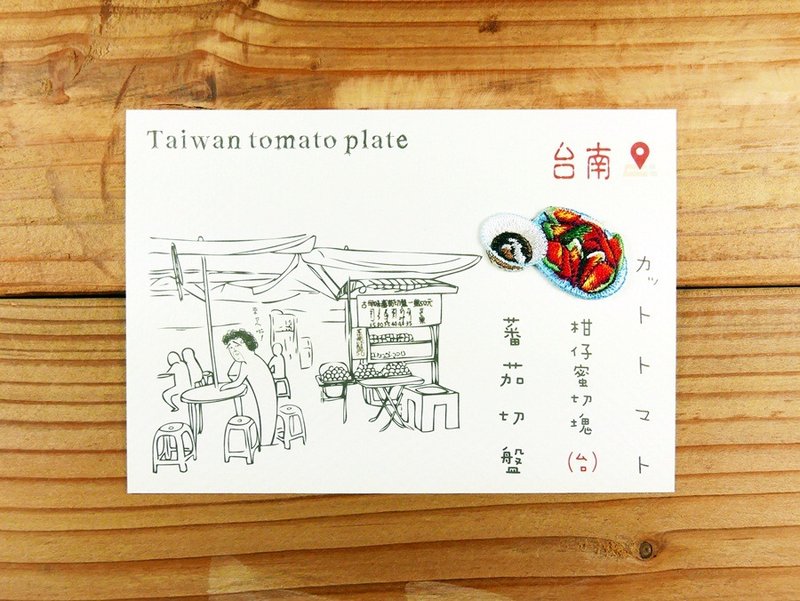 Taiwan tomato plate
台南
カットトマト
柑仔蜜切塊
(台)
蕃茄切盤